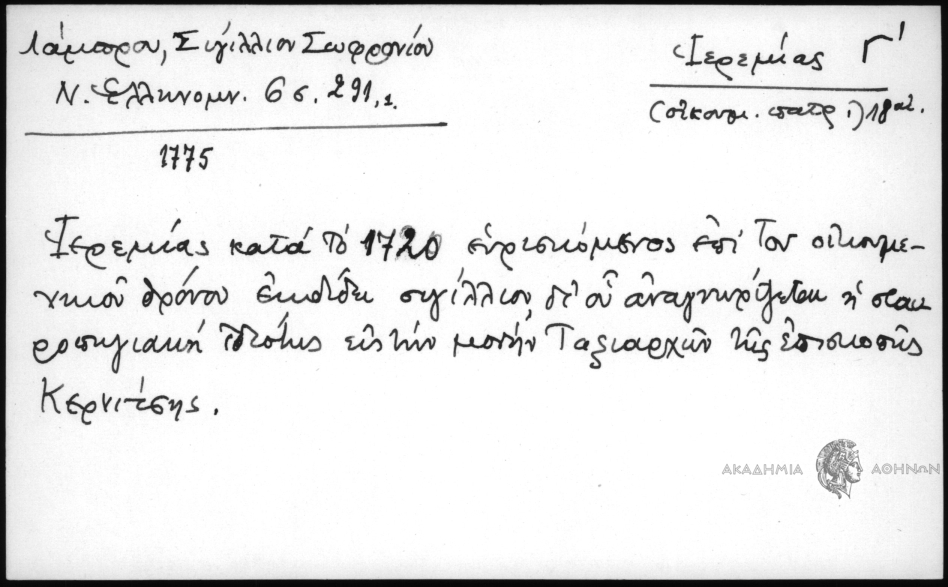 Λάμπρου, Σιγίλλιον Σωφρονίου
Ν. Ελληνομν. 6 σ. 291,1.
1775
Ἱερεμίας Γ'
(οἰκουμ. πατρ.) 18 αἰ.
Ἱερεμίας κατά τό 1720 εὑρισκόμενος ἐπί τοῦ οἰκουμε-
νικοῦ θρόνου ἐκδίδει σιγίλλιον, δι' οὗ ἀναγνωρίζεται ἡ σταυ
ροπηγιακή ἰδιότης εἰς τήν μονήν Ταξιαρχῶν τῆς ἐπισκοπῆς
Κερνιτσης.
ΑΚΑΔΗΜΙΑ ΑΘΗΝΩΝ